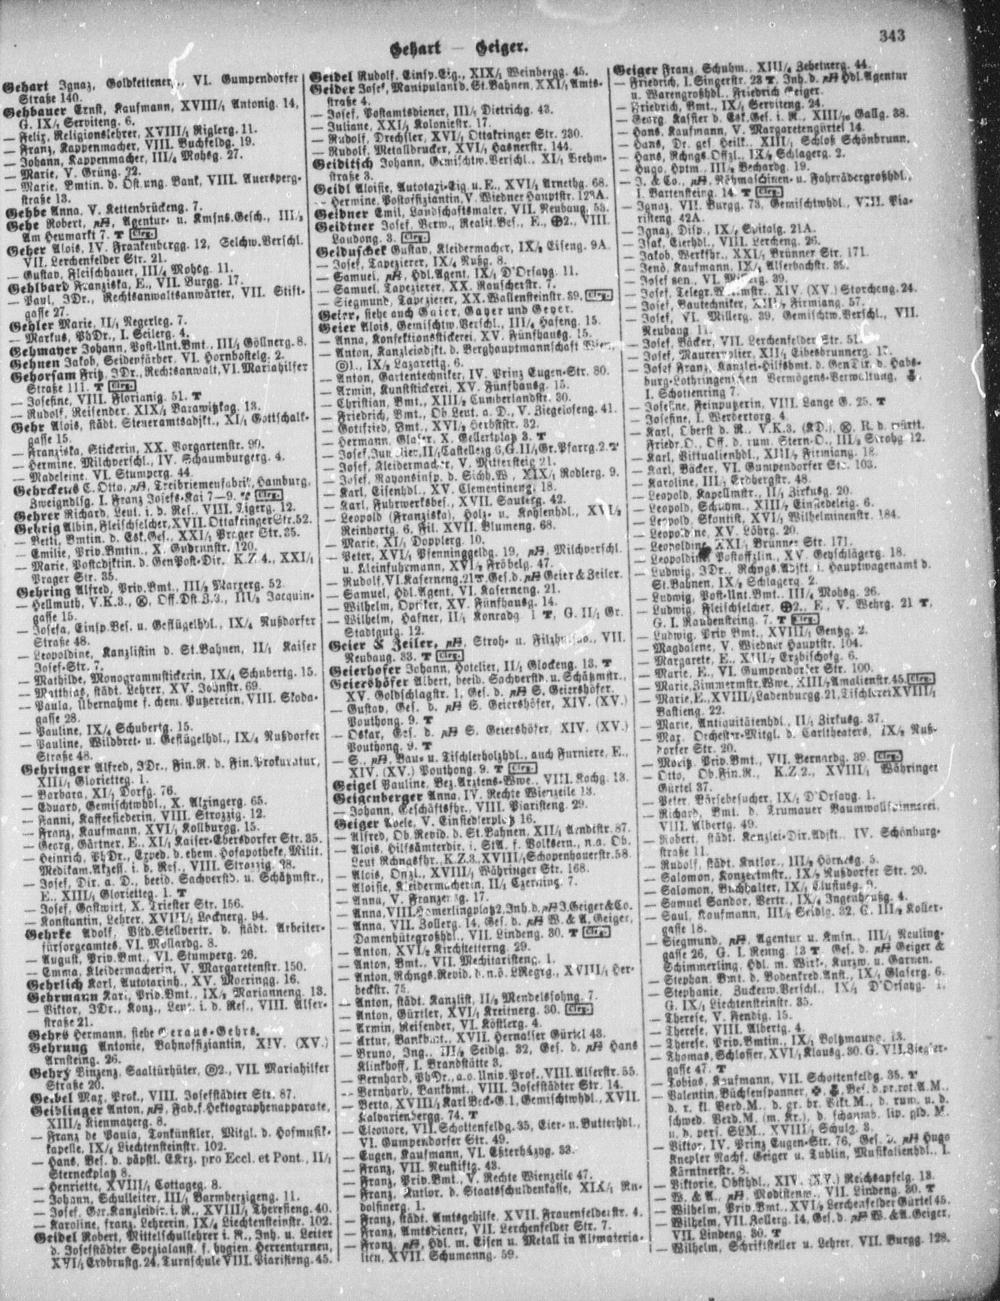 343
Gehart — Geiger.
Gehart Ignaz, Goldkettener, VI. Gumpendorfer
Straße 140.
Gehbauer Ernst, Kaufmann, XVIII/1 Antonig. 14,
G. IX/1 Serviteng. 6.
— Felix, Religionslehrer, XVIII/1 Riglerg. 11.
— Franz, Kappenmacher, VIII. Buchfeldg. 19.
— Johann, Kappenmacher, III/4 Mohsg. 27.
— Marie, V. Grüng. 22.
— Marie, Bmtin. d. Öst.ung. Bank, VIII. Auersperg-
straße 13.
Gehbe Anna, V. Kettenbrückeng. 7.
Gehe Robert, Agentur- u. Kmsns.Gesch., III/3
Am Heumarkt 7.
Geher Alois, IV. Frankenbergg. 12, Selchw.Verschl.
VII. Lerchenfelder Str. 21.
— Gustav, Fleischhauer, III/4 Mohsg. 11.
Gehlbard Franziska, E., VII. Burgg. 17.
— Paul, JDr., Rechtsanwaltsanwärter, VII. Stift-
gasse 27.
Gehler Marie, II/1 Negerleg. 7.
— Markus, PhDr., I. Seilerg. 4.
Gehmayer Johann, Post-Unt.Bmt., III/2 Göllnerg. 8.
Gehnen Jakob, Seidenfärber, VI. Hornbostelg. 2.
Gehorsam Fritz, JDr., Rechtsanwalt, VI. Mariahilfer
Straße 111.
— Josefine, VIII. Florianig. 51.
— Rudolf, Reisender, XIX/1 Barawitzkag. 13.
Gehr Alois, städt. Steueramtsadjkt., XI/1 Gottschalk-
gasse 15.
— Franziska, Stickerin, XX. Vorgartenstr. 99.
— Hermine, Milchverschl., IV. Schaumburgerg. 4.
— Madeleine, VI. Stumperg. 44.
Gehrckens C. Otto, Treibriemenfabrik, Hamburg,
Zweignblsg. I. Franz Josefs-Kai 7—9.
Gehrer Richard, Leut. i. d. Res., VIII. Tigerg. 12.
Gehrig Albin, Fleischselcher, XVII. Ottakringer Str. 52.
— Betti, Bmtin. d. Est.Ges., XXI/1 Prager Str. 35.
— Emilie, Priv.Bmtin., X. Gudrunstr. 120.
— Marie, Postadjktin. d. GenPost-Dir., K.Z. 4., XXI/1
Prager Str. 35.
Gehring Alfred, Priv.Bmt., III/3 Marxerg. 52.
— Hellmuth, V.K.3., Off.Dst.Z.3., III/3 Jacquin-
gasse 15.
— Josefa, Einsp.Bes. u. Geflügelhdl., IX/4 Nußdorfer
Straße 48.
— Leopoldine, Kanzlistin d. St.Bahnen, II/1 Kaiser
Josef-Str. 7.
— Mathilde, Monogrammstickerin, IX/4 Schubertg. 15.
— Matthias, städt. Lehrer, XV. Johnstr. 69.
— Paula, Übernahme f. chem. Putzereien, VIII. Skoda-
gasse 28.
— Pauline, IX/4 Schubertg. 15.
— Pauline, Wildbret- u. Geflügelhdl., IX/4 Nußdorfer
Straße 48.
Gehringer Alfred, JDr., Fin.R. d. Fin.Prokuratur,
XIII/1 Glorietteg. 1.
— Barbara, XI/1 Dorfg. 76.
— Eduard, Gemischtwhdl., X. Alxingerg. 65.
— Fanni, Kaffeesiederin, VIII. Strozzig. 12.
— Franz, Kaufmann, XVI/1 Kollburgg. 15.
— Georg, Gärtner, E., XI/1 Kaiser-Ebersdorfer Str. 35.
— Heinrich, PhDr., Exped. d. ehem. Hofapotheke, Milit.
Medikam.Akzess. i. d. Res., VIII. Strozzig. 28.
— Josef, Dir. a. D., beeid. Sachverst. u. Schätzmstr.,
E., XIII/1 Glorietteg. 1.
— Josef, Gastwirt, X. Triester Str. 156.
— Konstantin, Lehrer, XVIII/1 Lacknerg. 94.
Gehrke Adolf, Vtd.Stellvertr. d. städt. Arbeiter-
fürsorgeamtes, VI. Mollardg. 8.
— August, Priv.Bmt., VI. Stumperg. 26.
— Emma, Kleidermacherin, V. Margaretenstr. 150.
Gehrlich Karl, Autotarinh., XV. Moeringg. 16.
Gehrmann Kar., Priv.Bmt., IX/2 Mariannengg. 13.
— Viktor, JDr., Konz., Leut. i. d. Res., VIII. Alser-
straße 21.
Gehrs Hermann, siehe Geraus-Gehrs.
Gehrung Antonie, Bahnoffiziantin, XIV. (XV.)
Arnsteing. 26.
Gehry Vinzenz, Saaltürhüter, VII. Mariahilfer
Straße 20.
Geibel Max, Prok., VIII. Josefstädter Str. 87.
Geiblinger Anton, Fab.f.Hektographenapparate,
XIII/2 Kienmayerg. 8.
— Franz de Paula, Tonkünstler, Mitgl. d. Hofmusik-
kapelle, IX/4 Liechtensteinstr. 102.
— Hans, Bes. d. päpstl. EKrz. pro Eccl. et Pont., II/1
Sterneckplatz 8.
— Henriette, XVIII/1 Cottageg. 8.
— Johann, Schulleiter, III/1 Barmherzigeng. 11.
— Josef, Ger.Kanzleidir. i. R., XVIII/1 Theresieng. 40.
— Karoline, franz. Lehrerin, IX/4 Liechtensteinstr. 102.
Geidel Robert, Mittelschullehrer i. R., Inh. u. Leiter
d. Josefstädter Spezialanst. f. hygien. Herrenturnen,
XVI/1 Erdbrustg. 24, Turnschule VIII. Piaristeng. 45.
Geidel Rudolf, Einsp.Eig., XIX/1 Weinbergg. 45.
Geider Josef, Manipulant d. St.Bahnen, XXI/1 Amts-
straße 4.
— Josef, Postamtsdiener, III/1 Dietrichg. 43.
— Juliane, XXI/1 Kolonistr. 17.
— Rudolf, Drechsler, XVI/1 Ottakringer Str. 230.
— Rudolf, Metalldrucker, XVI/1 Hasnerstr. 144.
Geiditsch Johann, Gemischtw.Verschl., XI/1 Brehm-
straße 3.
Geidl Aloisie, Autotaxi-Eig. u. E., XVI/1 Arnethg. 68.
— Hermine, Postoffiziantin, V. Wiedner Hauptstr. 123A.
Geidner Emil, Landschaftsmaler, VII. Neubaug. 53.
Geidtner Josef, Verw., Realit.Bes., E., 2., VIII.
Laudong. 3.
Geiduschek Gustav, Kleidermacher, IX/4 Eiseng. 9A.
— Josef, Tapezierer, IX/4 Nußg. 8.
— Samuel, Hdl.Agent, IX/1 D'Orsayg. 11.
— Samuel, Tapezierer, XX. Rauscherstr. 7.
— Siegmund, Tapezierer, XX. Wallensteinstr. 39.
Geier, siehe auch Gaier, Gayer und Geyer.
Geier Alois, Gemischtw.Verschl., III/1 Hafeng. 15.
— Anna, Konfektionsstickerei, XV. Fünfhausg. 15.
— Anton, Kanzleiadjkt. d. Berghauptmannschaft Wien,
1., IX/4 Lazarettg. 6.
— Anton, Gartentechniker, IV. Prinz Eugen-Str. 80.
— Armin, Kunststickerei, XV. Fünfhausg. 15.
— Christian, Bmt., XIII/1 Cumberlandstr. 30.
— Friedrich, Bmt., Ob.Leut. a. D., V. Ziegelofeng. 41.
— Gottfried, Bmt., XVI/1 Herbststr. 32.
— Hermann, Glaser, X. Gellertplatz 3.
— Josef, Juwelier, II/1 Castellezg. 6, G. II/1 Gr. Pfarrg. 2.
— Josef, Kleidermacher, V. Mittersteig 21.
— Josef, Rayonsinsp. d. Sichh.W., XIX/1 Rodlerg. 9.
— Karl, Eisenhdl., XV. Clementineng. 18.
— Karl, Fuhrwerksbes., XVII. Sauterg. 42.
— Leopold (Franziska), Holz- u. Kohlenhdl., XVI/1
Reinhartg. 6, Fil. XVII. Blumeng. 68.
— Marie, XI/1 Dopplerg. 10.
— Peter, XVI/1 Pfenninggeldg. 19, Milchverschl.
u. Kleinfuhrmann, XVI/1 Fröbelg. 47.
— Rudolf, VI. Kaserneng. 21, Ges. d. Geier & Zeiler.
— Samuel, Hdl.Agent, VI. Kaserneng. 21.
— Wilhelm, Optiker, XV. Fünfhausg. 14.
— Wilhelm, Hafner, II/1 Konradg. 1, G. II/1 Gr.
Stadtgutg. 12.
Geier & Zeiler, Stroh- u. Filzhutfab., VII.
Neubaug. 33.
Geierhofer Johann, Hotelier, II/1 Glockeng. 13.
Geiershöfer Albert, beeid. Sachverst. u. Schätzmstr.,
XV. Goldschlagstr. 1, Ges. d. S. Geiershöfer.
— Gustav, Ges. d. S. Geiershöfer, XIV. (XV.)
Pouthong. 9.
— Oskar, Ges. d. S. Geiershöfer, XIV. (XV.)
Pouthong. 9.
— S., Bau- u. Tischlerholzhdl., auch Furniere, E.,
XIV. (XV.) Pouthong. 9.
Geigel Pauline, Bez.Arztens-Wwe., VIII. Kochg. 13.
Geigenberger Anna, IV. Rechte Wienzeile 13.
— Johann, Geschäftsfhr., VIII. Piaristeng. 29.
Geiger Adele, V. Einsiedlerplatz 16.
— Alfred, Ob.Revid. d. St.Bahnen, XII/1 Arndtstr. 87.
— Alois, Hilfsämterdir. i. StA. f. Volksern., n.a. Ob.
Leut Rchngsfhr., K.Z.3., XVIII/1 Schopenhauerstr. 58.
— Alois, Onzl., XVIII/1 Währinger Str. 168.
— Aloisie, Kleidermacherin, II/1 Czerning. 7.
— Anna, V. Franzensg. 17.
— Anna, VIII. Hamerlingplatz 2, Inh. d. J. Geiger & Co.
— Anna, VII. Zollerg. 14, Ges. d. W. & A. Geiger,
Damenhütegroßhdl., VII. Lindeng. 30.
— Anton, XV/1 Kirchstetterng. 29.
— Anton, Bmt., VII. Mechitaristeng. 1.
— Anton, Rchngs.Revid. d. n.ö. LRegrg., XVIII/1 Her-
beckstr. 75.
— Anton, städt. Kanzlist, II/2 Mendelssohng. 7.
— Anton, Gürtler, XVI/1 Kreitnerg. 30.
— Armin, Reisender, VI. Köstlerg. 4.
— Artur, Bankbmt., XVII. Hernalser Gürtel 43.
— Bruno, Ing., III/2 Seidlg. 32, Ges. d. Hans
Klinkhoff, I. Brandstätte 3.
— Bernhard, PhDr., a.o. Univ.Prof., VIII. Alserstr. 55.
— Bernhard, Bankbmt., VIII. Josefstädter Str. 14.
— Berta, XVIII/1 Karl Beck-G. 1, Gemischtwhdl., XVII.
Kalvarienbergg. 74.
— Eleonore, VII. Schottenfeldg. 35, Eier- u. Butterhdl.,
VI. Gumpendorfer Str. 49.
— Eugen, Kaufmann, VI. Esterházyg. 33.
— Franz, VII. Neustiftg. 43.
— Franz, Priv.Bmt., V. Rechte Wienzeile 47.
— Franz, Kntlor. d. Staatsschuldenkasse, XIX/1 Ru-
dolfinerg. 1.
— Franz, städt. Amtsgehilfe, XVII. Frauenfelderstr. 4.
— Franz, Amtsdiener, VII. Lerchenfelder Str. 7.
— Franz, Hdl. m. Eisen u. Metall in Altmateria-
lien, XVII. Schumanng. 59.
Geiger Franz, Schuhm., XIII/4 Zehetnerg. 44.
— Friedrich, I. Singerstr. 23, Inh. d. Hdl.Agentur
u. Warengroßhdl., Friedrich Geiger.
— Friedrich, Bmt., IX/1 Serviteng. 24.
— Georg, Kassier d. Est.Ges. i. R., XIII/10 Gallg. 38.
— Hans, Kaufmann, V. Margaretengürtel 14.
— Hans, Dr. ges. Heilk., XIII/1 Schloß Schönbrunn.
— Hans, Rchngs.Offzl., IX/4 Schlagerg. 2.
— Hugo, Hptm., III/2 Bechardg. 19.
— J. & Co., Nähmaschinen- u. Fahrrädergroßhdl.,
I. Bartensteing. 14.
— Ignaz, VII. Burgg. 73, Gemischtwhdl., VIII. Pia-
risteng. 42A.
— Ignaz, Disp., IX/4 Spitalg. 21A.
— Isak, Eierhdl., VIII. Lercheng. 26.
— Jakob, Werksthr., XXI/1 Brünner Str. 171.
— Jenö, Kaufmann, IX/4 Alserbachstr. 35.
— Josef sen., VI. Millerg. 39.
— Josef, Telegr.Werkmstr., XIV. (XV.) Storcheng. 24.
— Josef, Bautechniker, XIII/1 Firmiang. 57.
— Josef, VI. Millerg. 39, Gemischtw.Verschl., VII.
Neubaug. 11.
— Josef, Bäcker, VII. Lerchenfelder Str. 51.
— Josef, Maurerpolier, XII/1 Eibesbrunnerg. 17.
— Josef Franz, Kanzlei-Hilfsbmt. d. Gen.Dir. d. Habs-
burg-Lothringenschen Vermögens-Verwaltung,
I. Schottenring 7.
— Josefine, Feinputzerin, VIII. Lange G. 25.
— Josefine, I. Werdertorg. 4.
— Karl, Oberst d. R., V.K.3. (KD.), R. d. württ.
Friedr.O., Off. d. rum. Stern-O., III/3 Strohg. 12.
— Karl, Viktualienhdl., XIII/1 Firmiang. 18.
— Karl, Bäcker, VI. Gumpendorfer Str. 103.
— Karoline, III/2 Erdbergstr. 48.
— Leopold, Kapellmstr., II/1 Zirkusg. 20.
— Leopold, Schuhm., XIII/1 Einsiedeleig. 6.
— Leopold, Skontist, XVI/1 Wilhelminenstr. 184.
— Leopoldine, XV. Löhrg. 20.
— Leopoldine, XXI/1 Brünner Str. 171.
— Leopoldine, Postoffzlin., XV. Gebschlägerg. 18.
— Ludwig, JDr., Rchngs.Adjkt. i. Hauptwagenamt d.
St.Bahnen, IX/4 Schlagerg. 2.
— Ludwig, Post-Unt.Bmt., III/4 Mohsg. 26.
— Ludwig, Fleischselcher, 2., E., V. Wehrg. 21,
G. I. Rauhensteing. 7.
— Ludwig, Priv.Bmt., XVIII/1 Gentzg. 2.
— Magdalene, V. Wiedner Hauptstr. 104.
— Margarete, E., XIII/1 Erzbischofg. 6.
— Marie, E., VI. Gumpendorfer Str. 100.
— Marie, Zimmermstr.Wwe., XIII/1 Amalienstr. 45.
— Marie, E., XVIII/1 Ladenburgg. 21, Tischlerei XVIII/1
Bastieng. 22.
— Marie, Antiquitätenhdl., II/1 Zirkusg. 37.
— Max, Orchester-Mitgl. d. Carltheaters, IX/4 Nuß-
dorfer Str. 20.
— Moritz, Priv.Bmt., VII. Bernardg. 39.
— Otto, Ob.Fin.R., K.Z.2., XVIII/1 Währinger
Gürtel 37.
— Peter, Börsebesucher, IX/1 D'Orsayg. 1.
— Richard, Bmt. d. Trumauer Baumwollspinnerei,
VIII. Albertg. 49.
— Robert, städt. Kanzlei-Dir.Adjkt., IV. Schönburg-
straße 11.
— Rudolf, städt. Kntlor., III/2 Hörnesg. 5.
— Salomon, Konzertmstr., IX/4 Nußdorfer Str. 20.
— Salomon, Buchhalter, IX/1 Clusiusg. 9.
— Samuel Sandor, Vertr., IX/4 Ingenhousg. 4.
— Saul, Kaufmann, III/2 Seidlg. 32, G. III/2 Koller-
gasse 18.
— Siegmund, Agentur u. Kmsn., III/3 Reuling-
gasse 26, G. I. Renng. 13, Ges. d. Geiger &
Schimmerling, Hdl. m. Wirk-, Kurzw. u. Garnen.
— Stephan, Bmt. d. Bodenkred.Anst., IX/1 Glaserg. 6.
— Stephanie, Zuckerw.Verschl., IX/1 D'Orsayg. 1,
G. IX/1 Liechtensteinstr. 35.
— Therese, V. Kendlg. 15.
— Therese, VIII. Albertg. 4.
— Therese, Priv.Bmtin., IX/1 Boltzmanng. 13.
— Thomas, Schlosser, XVI/1 Klausg. 30, G. VII. Ziegler-
gasse 47.
— Tobias, Kaufmann, VII. Schottenfeldg. 35.
— Valentin, Büchsenspanner, Bes. d. pr. rot. A.M.,
d. r. kl. Verd.M., d. gr. br. Vikt.M., d. rum. u. d.
schwed. Verd.M. (m. Kr.), d. schaumb. lip. gld. M.
u. d. pers. SLM., XVIII/1 Schulg. 3.
— Viktor, IV. Prinz Eugen-Str. 76, Ges. d. Hugo
Knepler Nachf. Geiger u. Tublin, Musikalienhdl., I.
Kärntnerstr. 8.
— Viktorie, Obsthdl., XIV. (XV.) Reichsapfelg. 13.
— W. & A., Modistenw., VII. Lindeng. 30.
— Wilhelm, Priv.Bmt., XVI/1 Lerchenfelder Gürtel 45.
— Wilhelm, VII. Zollerg. 14, Ges. d. W. & A. Geiger,
VII. Lindeng. 30.
— Wilhelm, Schriftsteller u. Lehrer, VII. Burgg. 128.